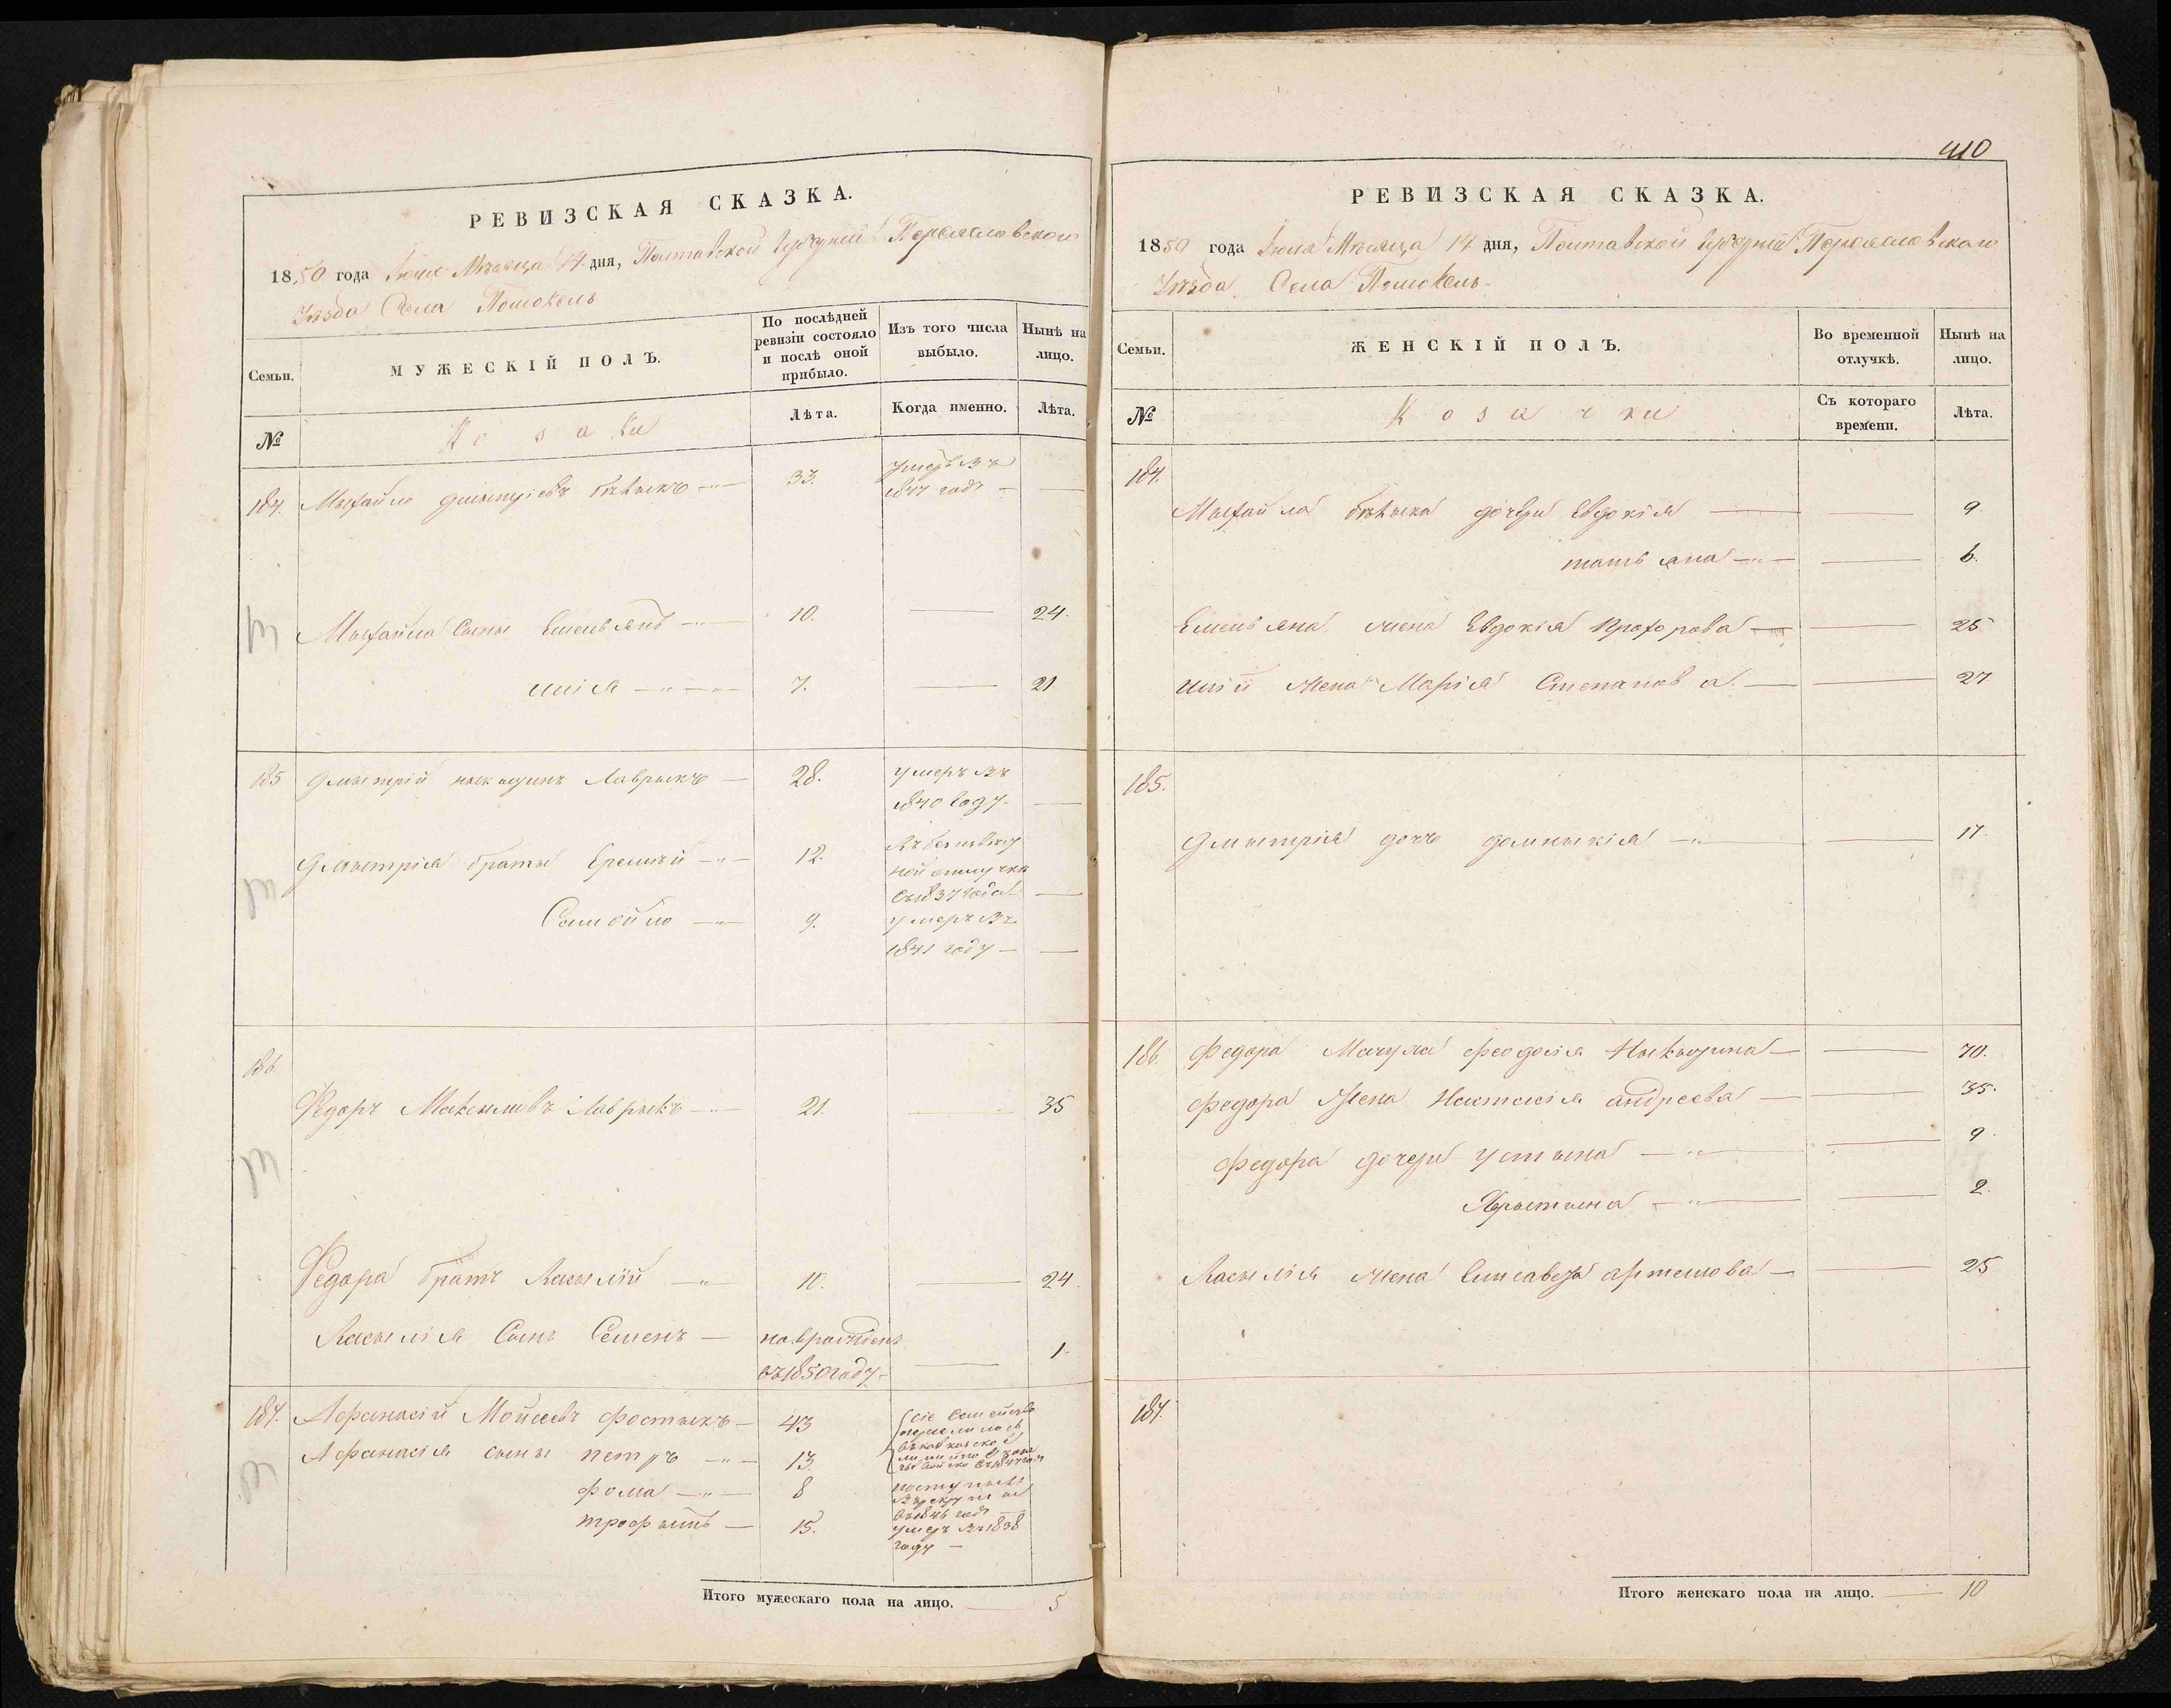 РЕВИЗСКАЯ СКАЗКА.
1850 года Июля Мѣсяца 14 дня, Полтавской Губерніи Переяславскаго
Уѣзда Села Помокель
Семьи.
МУЖЕСКІЙ ПОЛЪ.
По послѣдней ревизіи состояло и послѣ оной прибыло.
Изъ того числа выбыло.
Нынѣ на лицо.
№
Козаки
Лѣта.
Когда именно.
Лѣта.
184. Михайло Дмытріевъ 33. умеръ въ
1844 годѣ —
Михайла Сыны Емельянъ 10. — 24.
Илія 7. — 21.
185 Дмытрій Лаврыкъ — 28. умеръ въ
1840 году —
Дмытрія братья Еремѣй 12. въ безызвѣст
ной отлучкѣ
съ 1837 года —
Самойло 9. умеръ въ
1841 году —
186
Федоръ Максымовъ Лаврыкъ 21. — 35
Федора братъ Васылій 10. — 24.
Васылія Сынъ Семенъ — новорожденъ
въ 1850 году — 1.
187. Афанасій Мойсеевъ Фостыкъ — 43 сіе Семейство
переселилось
Афанасія сыны Петръ 13.
Фома 8 поступилъ
въ рекруты
въ 1846 годѣ
Трофымъ — 15. умеръ въ 1838
году —
Итого мужескаго пола на лицо. 5
410
РЕВИЗСКАЯ СКАЗКА.
1850 года Июля Мѣсяца 14 дня, Полтавской Губерніи Переяславскаго
Уѣзда Села Помокель
Семьи.
ЖЕНСКІЙ ПОЛЪ.
Во временной отлучкѣ.
Нынѣ на лицо.
№
Козачки
Съ котораго времени.
Лѣта.
184.
Михайла дочери Евдокія — 9
татьяна — 6.
Емельяна жена Евдокія Прохорова — 25
Иліи жена Марія Степанова — 27
185.
Дмытрія дочь домныкія — 17.
186. Федора Мачуха Феодосія Ныкытина — 70.
Федора Жена Настасія андреева — 35.
Федора дочери Устына — 9.
Хрыстына — 2.
Васылія жена Елисавета артемова — 25
187.
Итого женскаго пола на лицо. — 10